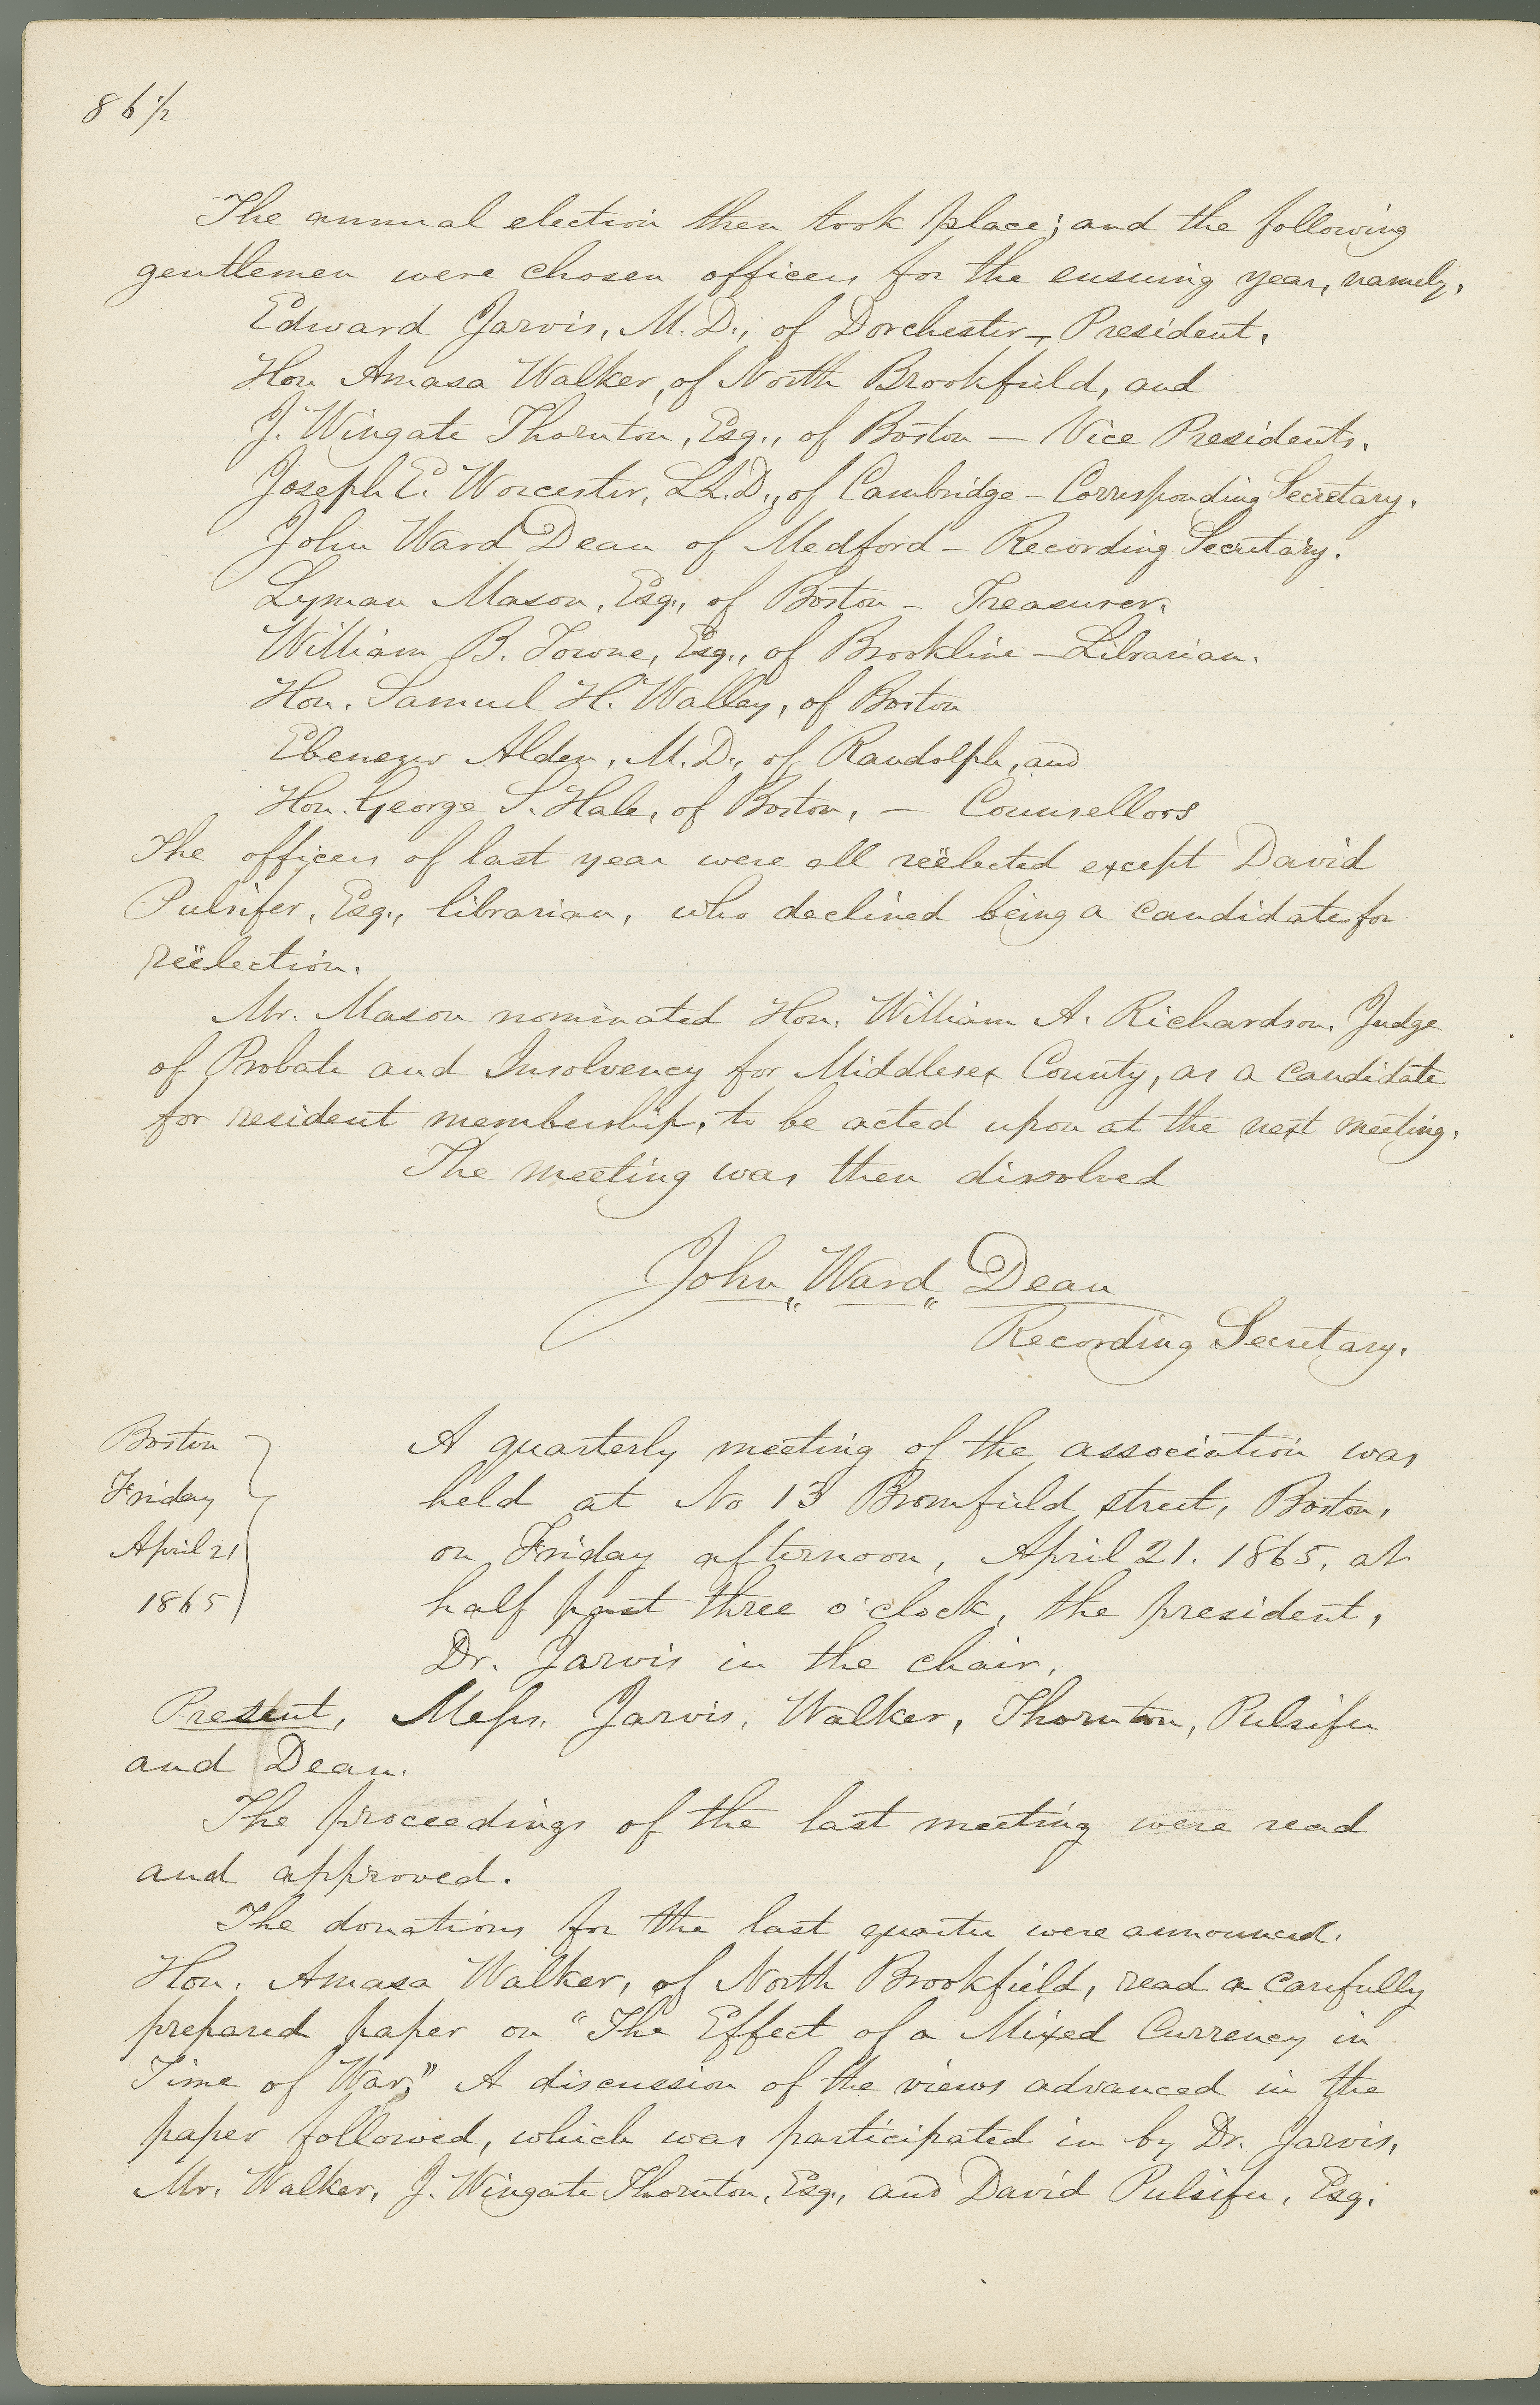 86½
The annual election then took place; and the following
gentlemen were chosen officers for the ensuing year, namely,
Edward Jarvis, M.D., of Dorchester – President.
Hon Amasa Walker, of North Brookfield, and
J. Wingate Thornton, Esq., of Boston – Vice Presidents.
Joseph E. Worcester, LL.D., of Cambridge – Corresponding Secretary.
John Ward Dean of Medford – Recording Secretary.
Lyman Mason, Esq., of Boston – Treasurer.
William B. Towne, Esq., of Brookline – Librarian.
Hon. Samuel H. Walley, of Boston
Ebenezer Alden, M.D., of Randolph, and
Hon. George S. Hale, of Boston, – Counsellors
The officers of last year were all reëlected except David
Pulsifer, Esq., librarian, who declined being a candidate for
reëlection.
Mr. Mason nominated Hon. William A. Richardson, Judge
of Probate and Insolvency for Middlesex County, as a candidate
for resident membership, to be acted upon at the next meeting.
The meeting was then dissolved
John Ward Dean
Recording Secretary.
Boston
Friday
April 21
1865
A quarterly meeting of the association was
held at No 13 Bromfield street, Boston,
on Friday afternoon, April 21. 1865, at
half past three o'clock, the president,
Dr. Jarvis in the chair.
Present, Messrs. Jarvis, Walker, Thornton, Pulsifer
and Dean.
The proceedings of the last meeting were read
and approved.
The donations for the last quarter were announced.
Hon. Amasa Walker, of North Brookfield, read a carefully
prepared paper on "The Effect of a Mixed Currency in
Time of War." A discussion of the views advanced in the
paper followed, which was participated in by Dr. Jarvis,
Mr. Walker, J. Wingate Thornton, Esq., and David Pulsifer, Esq.